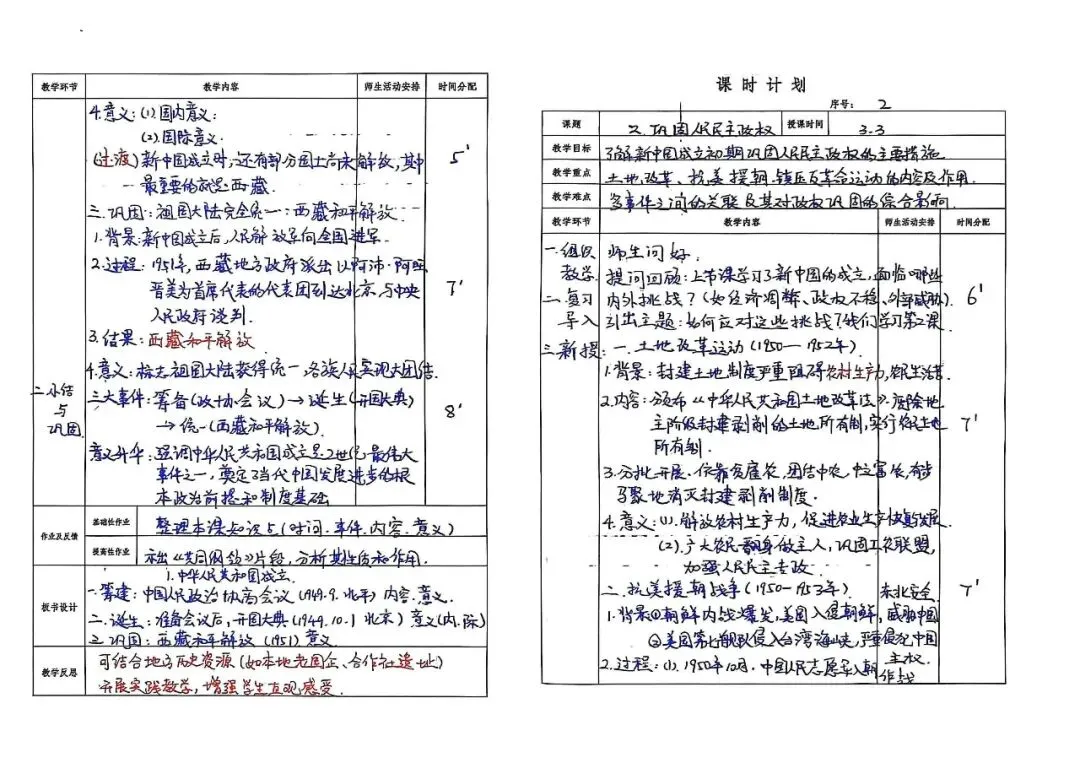 教学环节 教学内容 师生活动安排 时间分配
4.意义:(1)国内意义:
(2).国际意义.
(过渡)新中国成立时,还有部分国土尚未解放,其中 5'
最重要的就是西藏.
三.巩固:祖国大陆完全统一:西藏和平解放.
1.背景:新中国成立后,人民解放军向全国进军.
2.过程:1951年,西藏地方政府派出以阿沛·阿旺
晋美为首席代表的代表团到达北京,与中央 7'
人民政府谈判.
3.结果:西藏和平解放
4.意义:标志祖国大陆获得统一,各族人民实现大团结.
二.小结与巩固
三大事件:筹备(政协会议)→诞生(开国大典) 8'
→统一(西藏和平解放).
意义升华:强调中华人民共和国成立是20世纪最伟大
事件之一,奠定了当代中国发展进步的根
本政治前提和制度基础
作业及反馈
基础性作业 整理本课知识点(时间.事件.内容.意义)
提高性作业 示出《共同纲领》片段,分析其性质和作用.
板书设计
1.中华人民共和国成立.
一筹建:中国人民政治协商会议(1949.9.北平)内容.意义.
二.诞生:准备会议后,开国大典(1949.10.1 北京)意义(内.际)
三.巩固:西藏和平解放(1951)意义
教学反思 可结合地方历史资源(如本地老国企、合作社遗址)
开展实践教学,增强学生直观感受.
课时计划
序号: 2
课题 2.巩固人民民主政权 授课时间 3.3
教学目标 了解新中国成立初期巩固人民民主政权的主要措施
教学重点 土地改革、抗美援朝、镇压反革命运动的内容及作用.
教学难点 多事件之间的关联及其对政权巩固的综合影响.
教学环节 教学内容 师生活动安排 时间分配
一.组织 师生问好.
教学 提问回顾:上节课学习了新中国的成立,面临哪些
二.复习 内外挑战?(如经济凋弊、政权不稳、外部威胁). 6'
导入 引出主题:如何应对这些挑战?我们学习第2课.
三.新授: 一.土地改革运动(1950—1952年)
1.背景:封建土地制度严重阻碍农村生产力,农民生活苦.
2.内容:颁布《中华人民共和国土地改革法》.废除地
主阶级封建剥削的土地所有制,实行农民土地 7'
所有制.
3.分批开展.依靠贫雇农,团结中农,中立富农,有步
骤地消灭封建剥削制度.
4.意义:(1).解放农村生产力,促进农业生产恢复发展.
(2).广大农民翻身做主人,巩固工农联盟,
加强人民民主专政.
二.抗美援朝战争(1950—1953年) 东北安全. 7'
1.背景①朝鲜内战爆发,美国入侵朝鲜,威胁中国
②美国第七舰队侵入台湾海峡,严重侵犯中国
主权.
2.过程:(1).1950年10月.中国人民志愿军入朝作战